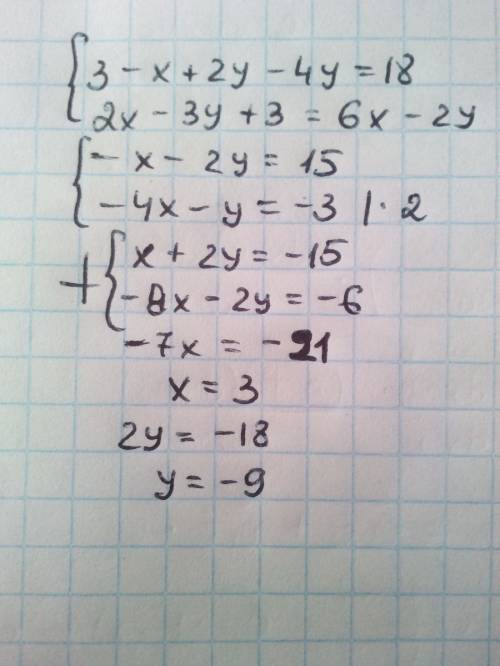 3 - x + 2y - 4y = 18
2x - 3y + 3 = 6x - 2y
- x - 2y = 15
- 4x - y = -3 | · 2
+ x + 2y = -15
- 8x - 2y = -6
- 7x = -21
x = 3
2y = -18
y = -9